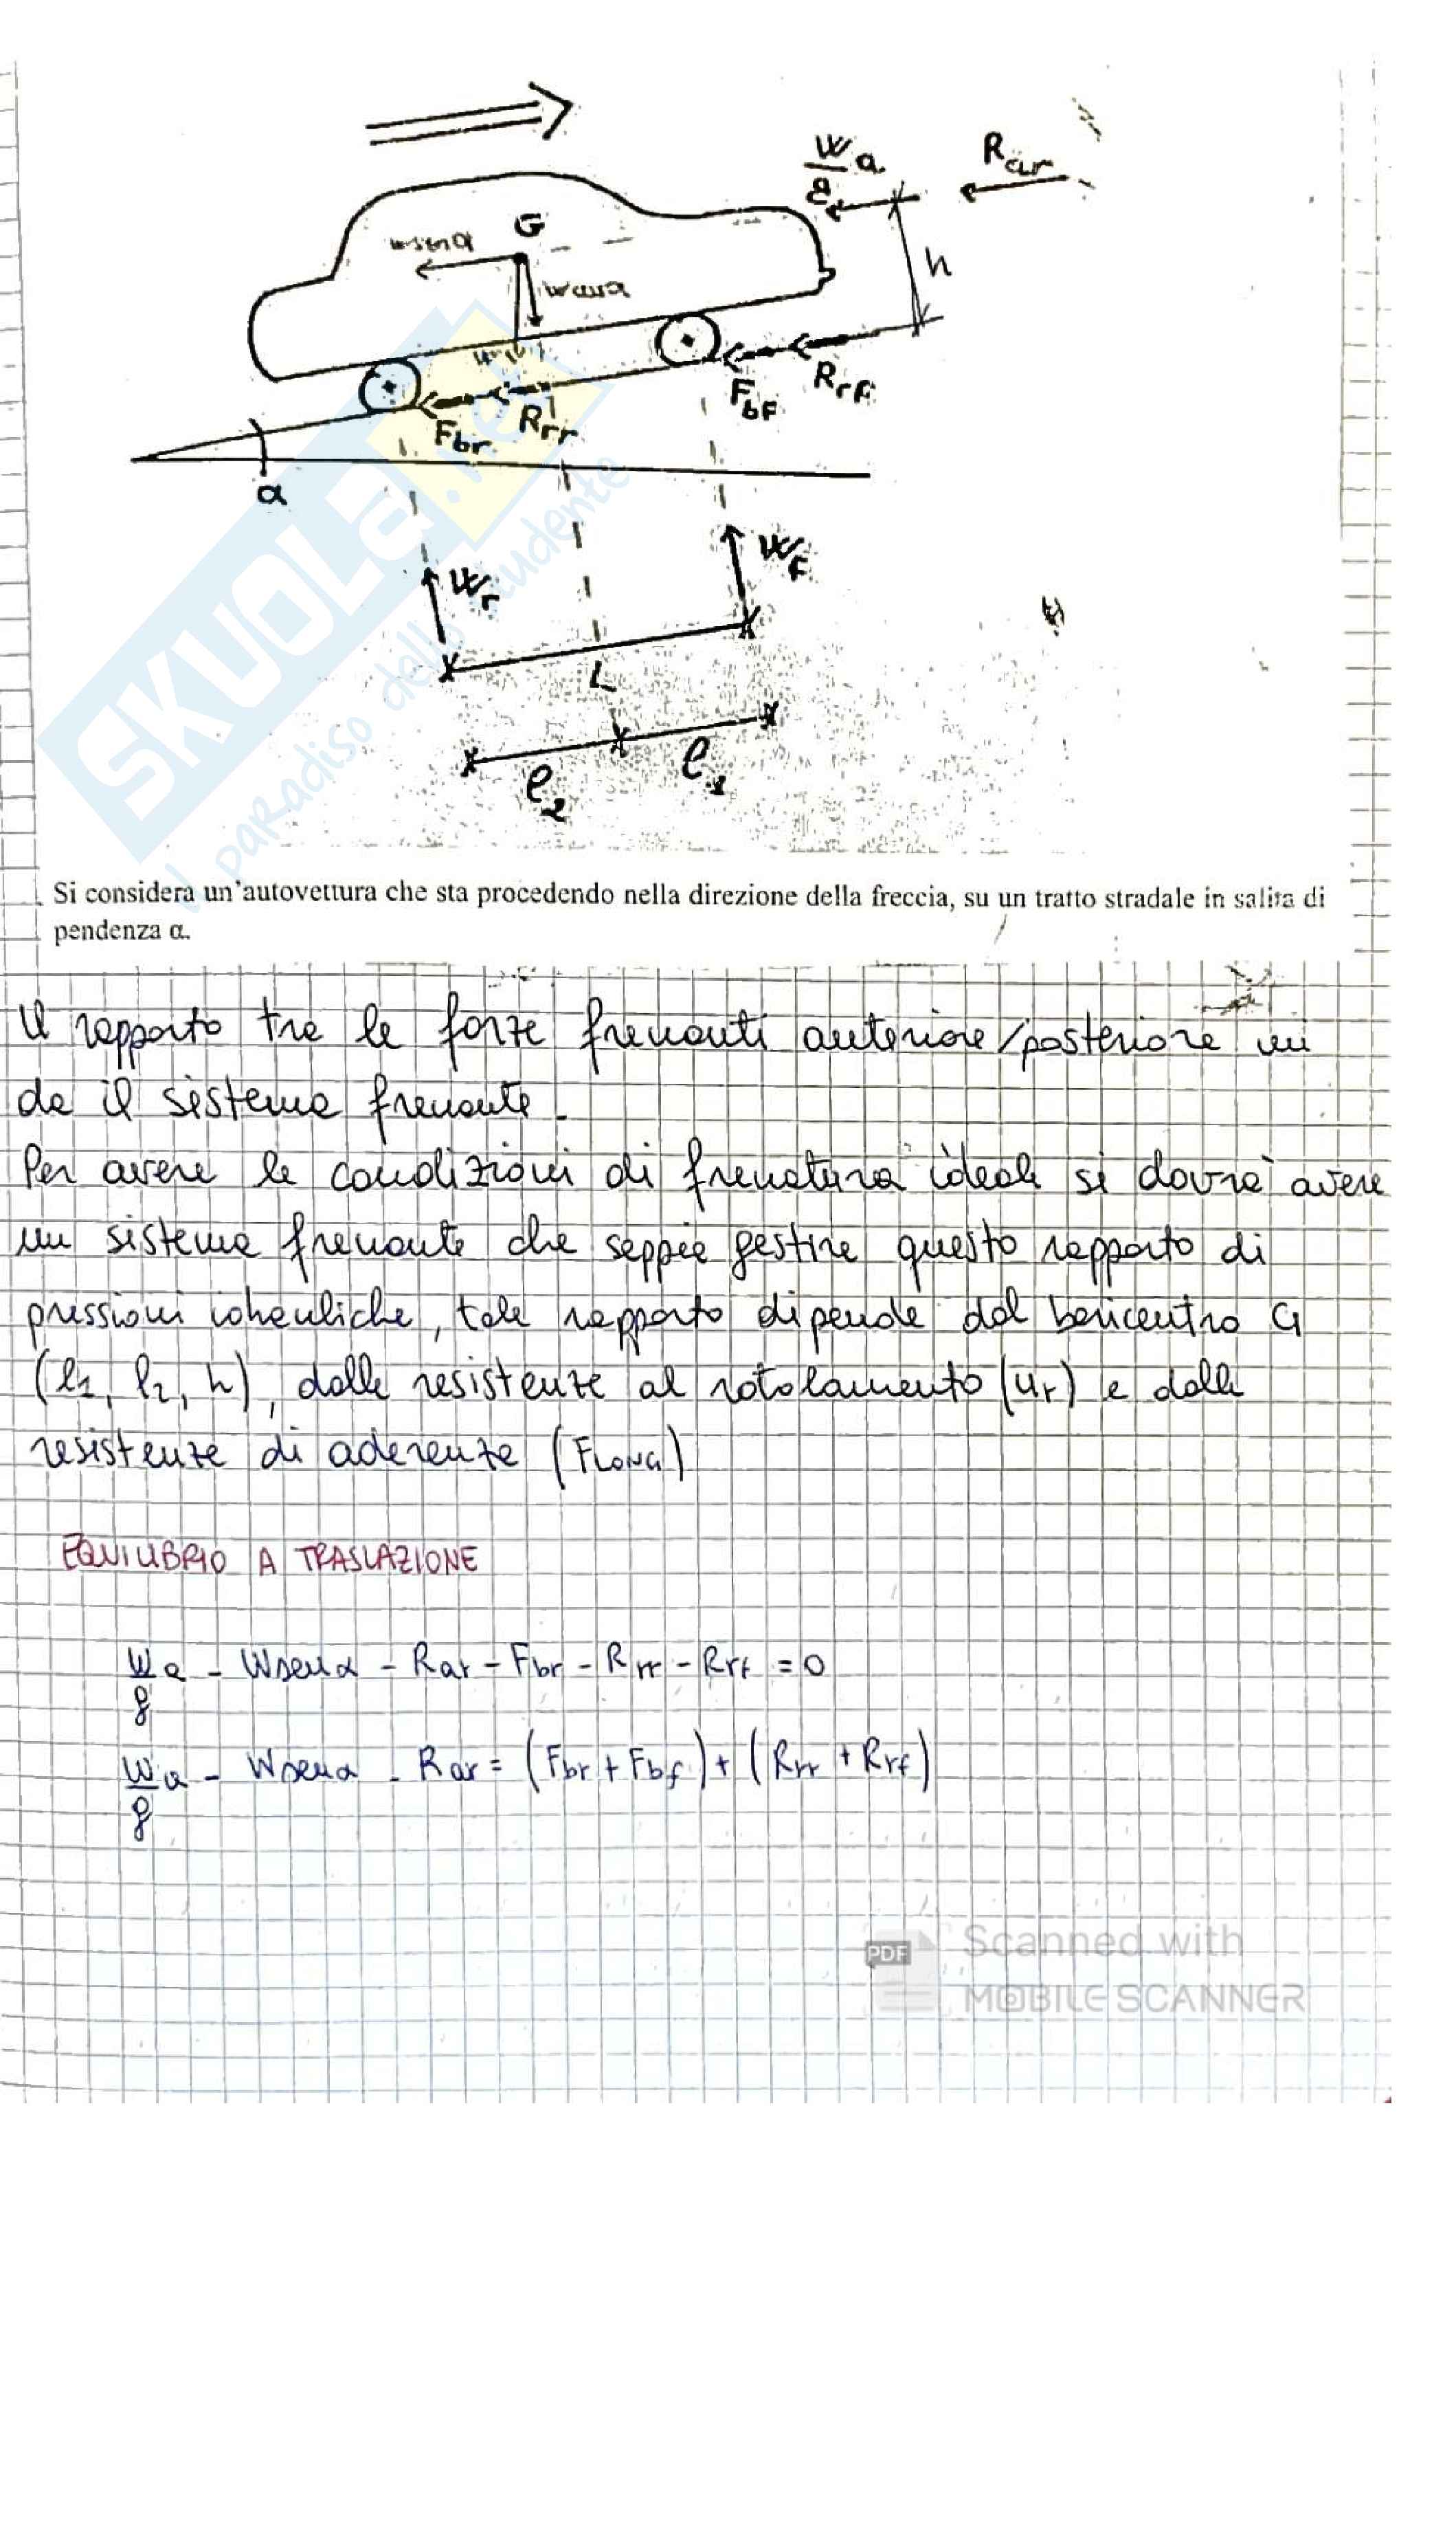 W/g a
R ar
G
W sen α
W cos α
h
F bF
R rF
F br
R rr
α
W F
W r
L
l2
l1
SKUOLA.net
il paradiso dello studente
Si considera un'autovettura che sta procedendo nella direzione della freccia, su un tratto stradale in salita di
pendenza α.
Il rapporto tra le forze frenanti anteriore/posteriore mi
da il sistema frenante.
Per avere le condizioni di frenatura ideali si dovrà avere
un sistema frenante che sappia gestire questo rapporto di
pressioni idrauliche, tale rapporto dipende dal baricentro G
(l1, l2, h), dalle resistenze al rotolamento (ur) e dalle
resistenze di aderenza (FLONG)
EQUILIBRIO A TRASLAZIONE
W/g a - W sen α - Rar - Fbr - Rrr - Rrf = 0
W/g a - W sen α - Rar = (Fbr + Fbf) + (Rrr + Rrf)
PDF
Scanned with
MOBILE SCANNER